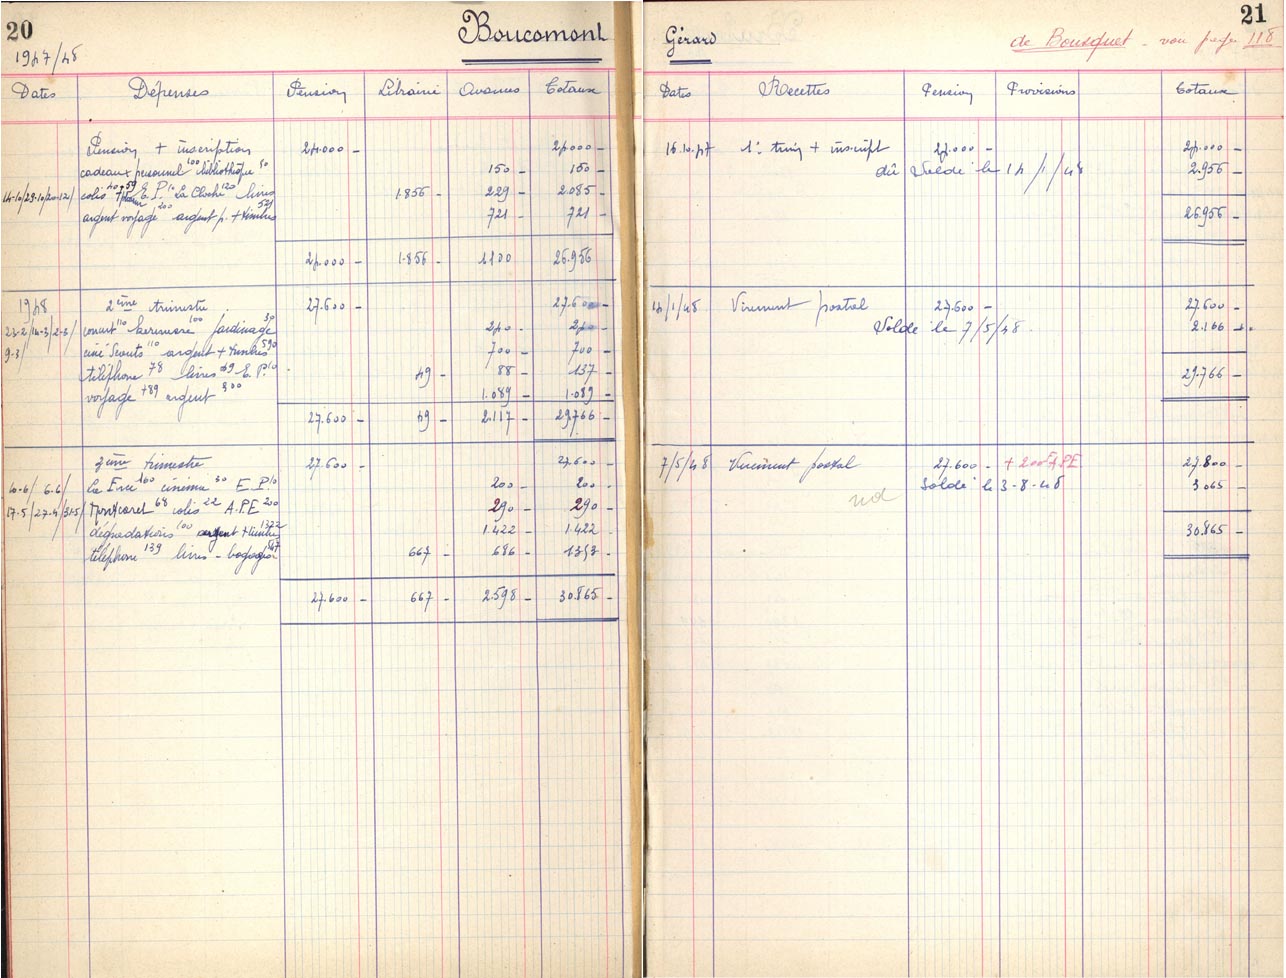 20
Boucomont
1947/48
Dates Dépenses Pension Librairie Avances Totaux
Pension + inscription 24.000 - 24.000 -
cadeaux personnel 100 bibliothèque 50 150 - 150 -
14-10/29-10/20-12/ colis 40+59 E.P. 10 La Cloche 120 livres 1.856 - 229 - 2.085 -
argent voyage 200 argent p. + timbres 521 721 - 721 -
24.000 - 1.856 - 1100 26.956
1948 2ème trimestre 27.600 - 27.600 -
23-2/14-3/2-3/ 110 kermesse 100 jardinage 30 240 - 240 -
9-3/ ciné Scouts 110 argent + timbres 590 700 - 700 -
téléphone 78 livres 49 E.P. 10 49 - 88 - 137 -
voyage 789 argent 300 1.089 - 1.089 -
27.600 - 49 - 2.117 - 29.766 -
3ème trimestre 27.600 - 27.600 -
10-6/ 6-6/ 160 cinéma 30 E.P. 10 200 - 200 -
17-5/27-4/31-5/ 68 colis 22 A.P.E 200 290 - 290 -
dégradations 100 argent + timbres 1322 1.422 - 1.422 -
téléphone 139 livres - bagages 547 667 - 686 - 1353 -
27.600 - 667 - 2.598 - 30.865 -
21
Gérard
de Bousquet - voir page 118
Dates Recettes Pension Provisions Totaux
16.10.47 1er trim + inscript 24.000 - 24.000 -
dû Soldé le 14/1/48 2.956 -
26956 -
14/1/48 Virement postal 27.600 - 27.600 -
Soldé le 7/5/48 2.166 -
29.766 -
7/5/48 Virement postal 27.600 - + 200 APE 27.800 -
Soldé le 3-8-48 3.065 -
30.865 -